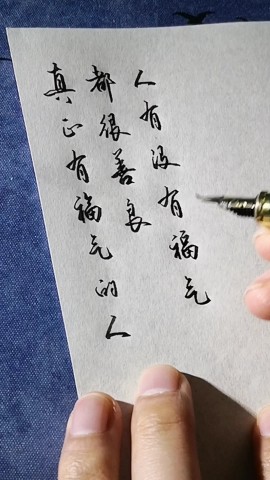 真正有福气的人
都很善良
人有没有福气